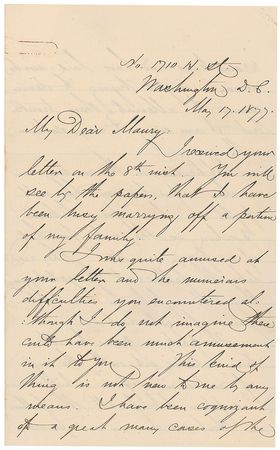 No. 1710 N. St.
Washington D.C.
May 17. 1877.
My Dear Maury
I received your
letter on the 8th inst. You will
see by the papers, that I have
been busy marrying off a portion
of my family.
I was quite amused at
your letter and the numerous
difficulties you encountered al-
though I do not imagine there
could have been much amusement
in it to you This kind of
thing is not new to me by any
means. I have been cognizant
of a great many cases of the